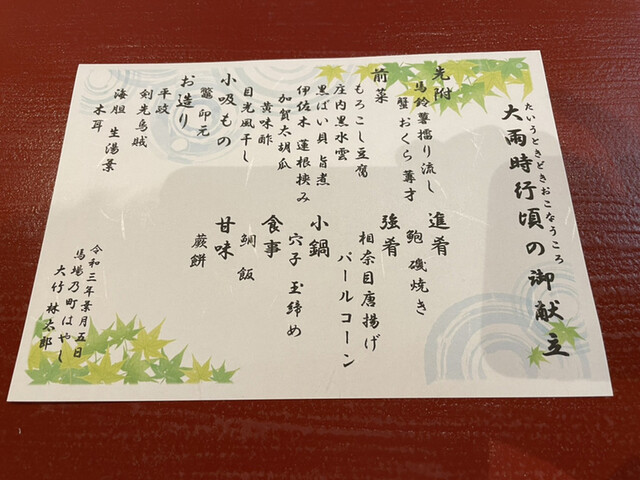 たいうときどきおこなうころ
大雨時行頃の御献立
先附
馬鈴薯擂り流し
蟹 おくら 蓴才
前菜
もろこし豆腐
庄内黒水雲
黒ばい貝 旨煮
伊佐木 蓮根挟み
加賀太胡瓜
黄味酢
目光風干し
小吸もの
鼈 卯元
お造り
平政
剣先烏賊
海胆 生湯葉
木耳
進肴
鮑 磯焼き
強肴
相奈目唐揚げ
パールコーン
小鍋
穴子 玉締め
食事
鯛飯
甘味
蕨餅
令和三年葉月五日
馬場乃町はやし
大竹 林太郎